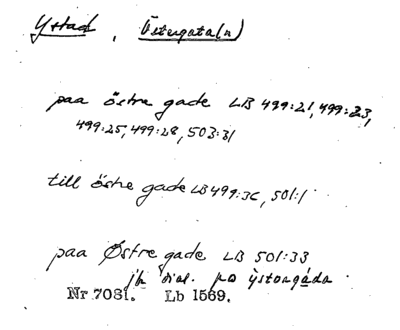 Ystad, Östergata(n)
paa östre gade LB 499:21, 499:23,
499:25, 499:28, 503:31
till östre gade LB 499:36, 501:1
paa Østre gade LB 501:33
jfr dial. po ÿstorgáda
Nr 7081. Lb 1569.